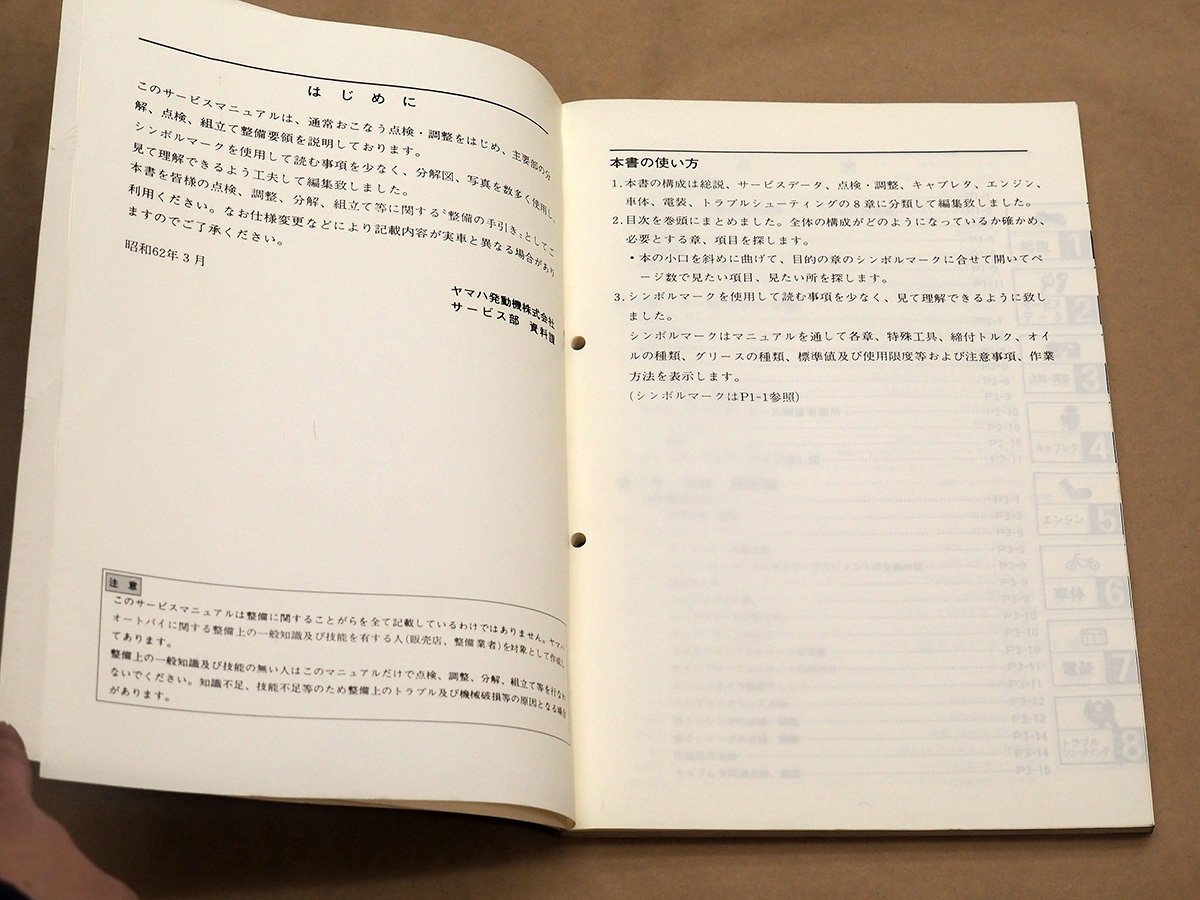 はじめに
このサービスマニュアルは、通常おこなう点検・調整をはじめ、主要部の分
解、点検、組立て整備要領を説明しております。
シンボルマークを使用して読む事項を少なく、分解図、写真を数多く使用し、
見て理解できるよう工夫して編集致しました。
本書を皆様の点検、調整、分解、組立て等に関する〝整備の手引き〟としてご
利用ください。なお仕様変更などにより記載内容が実車と異なる場合があり
ますのでご了承ください。
昭和62年3月
ヤマハ発動機株式会社
サービス部 資料課
注意
このサービスマニュアルは整備に関することがらを全て記載しているわけではありません。ヤマハ
オートバイに関する整備上の一般知識及び技能を有する人(販売店、整備業者)を対象として作成し
てあります。
整備上の一般知識及び技能の無い人はこのマニュアルだけで点検、調整、分解、組立て等を行なわ
ないでください。知識不足、技能不足等のため整備上のトラブル及び機械破損等の原因となる場合
があります。
本書の使い方
1.本書の構成は総説、サービスデータ、点検・調整、キャブレタ、エンジン、
車体、電装、トラブルシューティングの8章に分類して編集致しました。
2.目次を巻頭にまとめました。全体の構成がどのようになっているか確かめ、
必要とする章、項目を探します。
・本の小口を斜めに曲げて、目的の章のシンボルマークに合せて開いてペ
ージ数で見たい項目、見たい所を探します。
3.シンボルマークを使用して読む事項を少なく、見て理解できるように致し
ました。
シンボルマークはマニュアルを通して各章、特殊工具、締付トルク、オイ
ルの種類、グリースの種類、標準値及び使用限度等および注意事項、作業
方法を表示します。
(シンボルマークはP1-1参照)